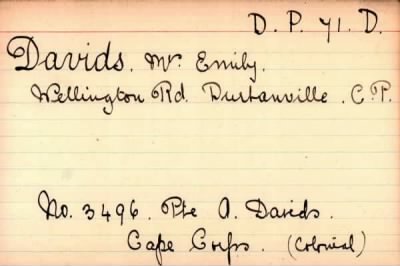 D. P. 71. D.
Davids. Mrs Emily.
Wellington Rd. Durbanville. C.P.
No. 3496. Pte A. Davids.
Cape Corps. (Colonial)